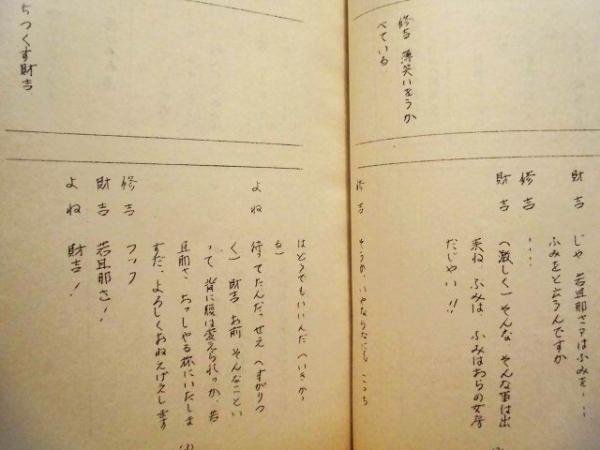 修吉 薄笑いをうか
べている
財吉 じゃ 若旦那さアはふみを‥‥
ふみをと云うんですか
修吉 ‥‥
財吉 (激しく)そんな そんな事は出
来ね ふみは ふみはおらの女房
だじゃい!!
修吉 そうか、いやならなにも こっち
ちつくす財吉
はどうでもいいんだ
よね 待ってたんだっせえ (すがりつ
く) 財吉 お前 そんなこといっ
て 背に腹は変えられっか、若
旦那さ おっしゃる様にいたしま
すだ、よろしくおねえげえします
修吉 フッフ
財吉 若旦那さ!
よね 財吉!